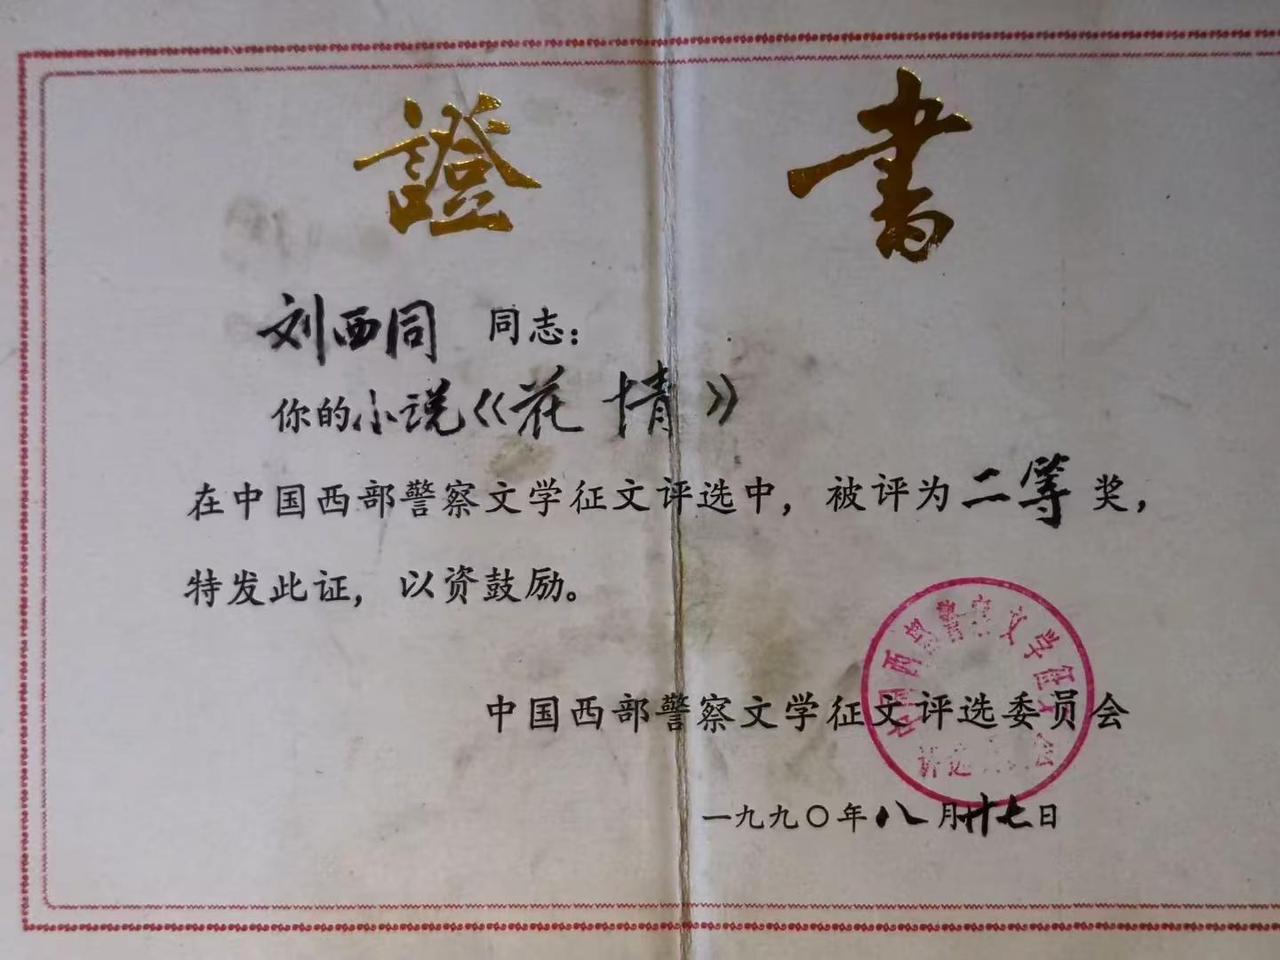 證 書
刘西同 同志：
你的小说《花情》
在中国西部警察文学征文评选中，被评为二等奖，
特发此证，以资鼓励。
中国西部警察文学征文评选委员会
一九九〇年八月廿七日
中国西部警察文学征文
评选委员会